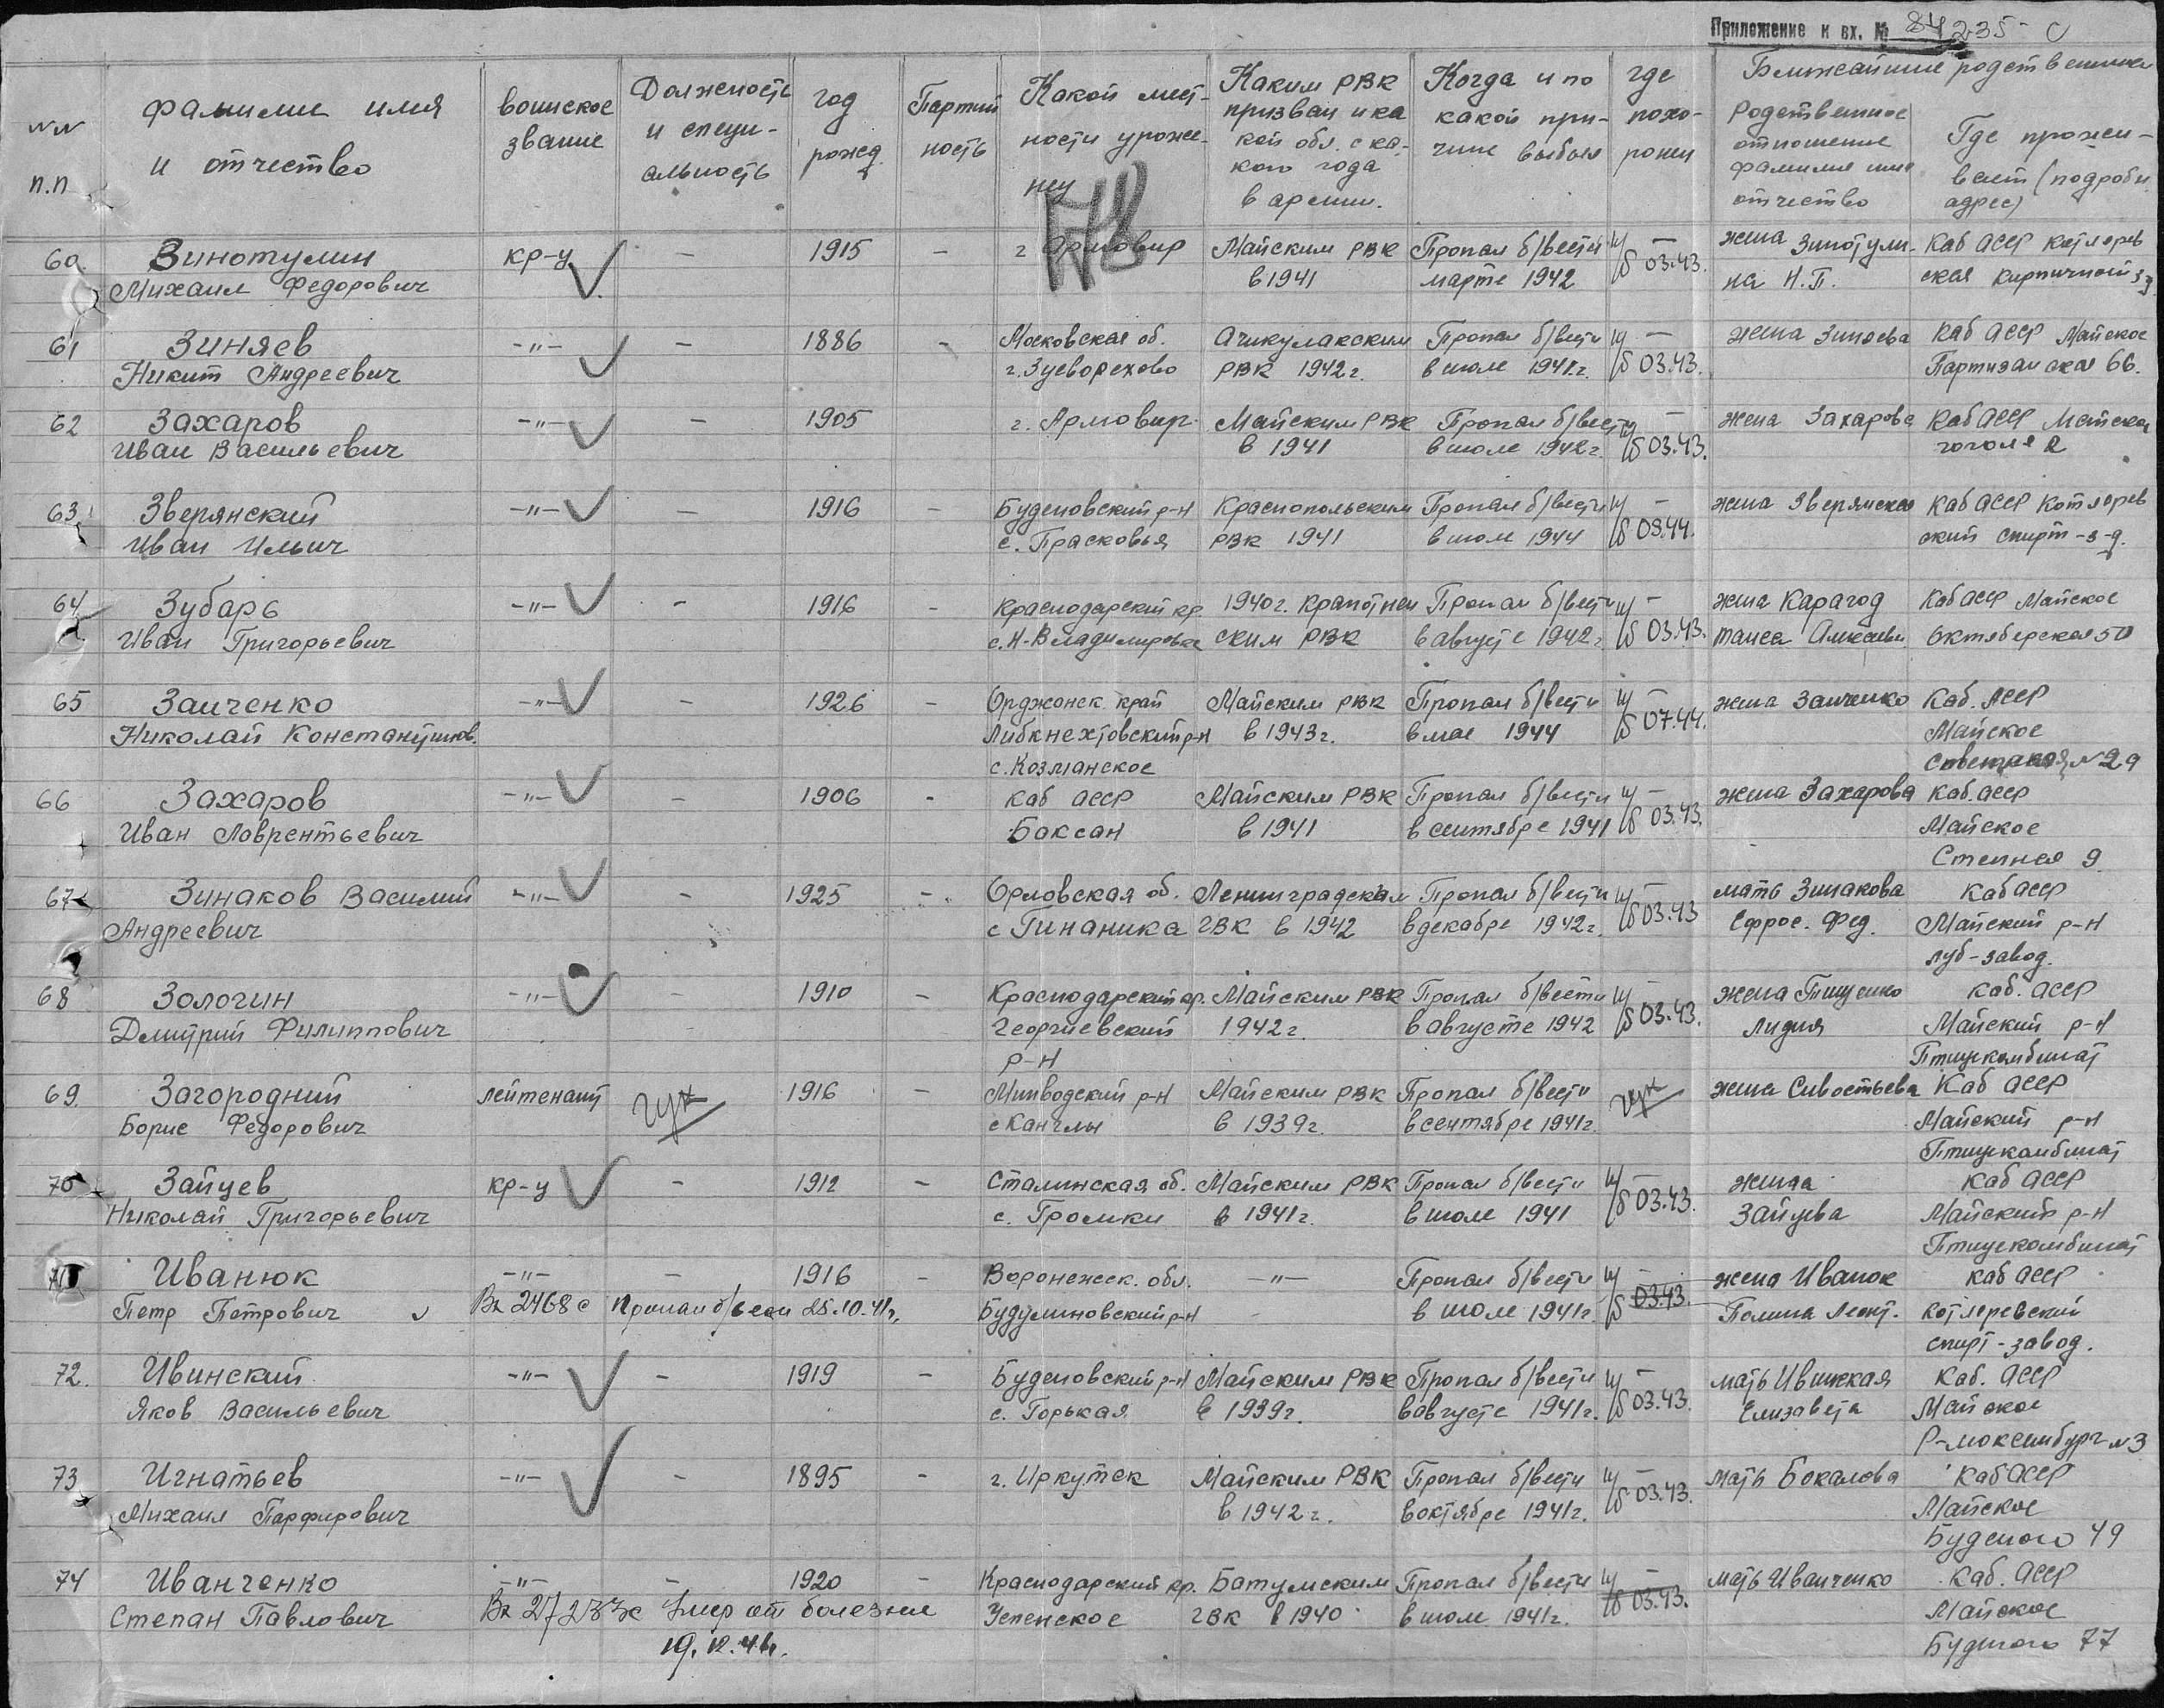 Приложение к вх. № 84235 с
№№ п.п
фамилии имя и отчество
воинское звание
Должность и специальность
год рожд.
Партийность
Какой местности уроже-
Каким РВК призван и какой обл. с какого года в армии.
Когда и по какой причине выбыл
где похоронен
Ближайшие родственники
Родственное отношение фамилия имя отчество
Где проживает (подробн адрес)
60. Зинотулин кр-ц - 1915 - г Армовир Майским РВК Пропал б/вести - жена Зинотули- Каб АССР Котлярев
Михаил Федорович в 1941 марте 1942 03.43. на Н.П. ская кирпичный
61 Зиняев -"- - 1886 - Московская об. Ачикулакским Пропал б/вести - жена Зиняева Каб АССР Майское
Никит Андреевич г. Зуеворехово РВК 1942 г. в июле 1941 г. 03.43. Партизанская 66.
62 Захаров -"- - 1905 г. Армовир Майским РВК Пропал б/вести - жена Захарова Каб АССР Майское
Иван Васильевич в 1941 в июле 1942 г. 03.43. гоголя 2
63 Зверянский -"- - 1916 - Буденовский р-н Краснопольским Пропал б/вести - жена Зверянская Каб АССР Котлярев
Иван Ильич с. Прасковья РВК 1941 в июле 1944 03.44. ский спирт-з-д.
64 Зубарь -"- - 1916 - Краснодарский кр. 1940 г. Кропоткин Пропал б/вести - жена Карагод Каб АССР Майское
Иван Григорьевич с. Н-Владимировка ским РВК в августе 1942 г 03.43. Таиса Алексеевн. Октябрьская 50
65 Заиченко -"- - 1926 - Орджонск. край Майским РВК Пропал б/вести - жена Заиченко Каб. АССР
Николай Константинов. Либкнехтовский р-н в 1943 г. в мае 1944 07.44. Майское
с. Козманское Советская № 29
66 Захаров -"- - 1906 - Каб АССР Майским РВК Пропал б/вести - жена Захарова Каб. АССР
Иван Лаврентьевич Баксан в 1941 в сентябре 1941 03.43. Майское
Степная 9
67 Зинаков Василий -"- - 1925 - Орловская об. Ленинградским Пропал б/вести - мать Зинакова Каб АССР
Андреевич с Гинаника ГВК в 1942 в декабре 1942 г. 03.43 Ефрос. Фед. Майский р-н
луб-завод.
68 Зологин -"- - 1910 - Краснодарский кр. Майским РВК Пропал б/вести - жена Тищенко Каб. АССР
Дмитрий Филиппович Георгиевский 1942 г. в августе 1942 03.43. Лидия Майский р-н
р-н Птицекомбинат
69. Загородний лейтенант гук 1916 - Минводский р-н Майским РВК Пропал б/вести гук жена Сивостьева Каб АССР
Борис Федорович с Канглы в 1939 г. в сентябре 1941 г. Майский р-н
Птицекомбинат
70 Зайцев кр-ц - 1912 - Сталинская об. Майским РВК Пропал б/вести - жена Каб АССР
Николай Григорьевич с. Громки в 1941 г. в июле 1941 03.43. Зайцева Майский р-н
Птицекомбинат
71 Иванюк -"- - 1916 - Воронежск. обл. -"- Пропал б/вести - жена Иванюк Каб АССР
Петр Петрович Вх 2468 с Пропал б/вести 25.10.41 г. в июле 1941 г. 03.43. Полина Леонт. Котляревский
спирт-завод.
72. Ивинский -"- - 1919 - Буденовский р-н Майским РВК Пропал б/вести - мать Ивинская Каб. АССР
Яков Васильевич с. Горькая в 1939 г. в августе 1941 г. 03.43. Елизавета Майское
Р-люксембург № 3
73 Игнатьев -"- - 1895 - г. Иркутск Майским РВК Пропал б/вести - мать Бокалова Каб АССР
Михаил Парфирович в 1942 г. в октябре 1941 г. 03.43. Майское
Буденого 49
74 Иванченко -"- - 1920 - Краснодарский кр. Батумским Пропал б/вести - мать Иванченко Каб. АССР
Степан Павлович Вх умер от болезни Успенское ГВК в 1940 в июле 1941 г. 03.43. Майское
19.12.41. Буденого 77